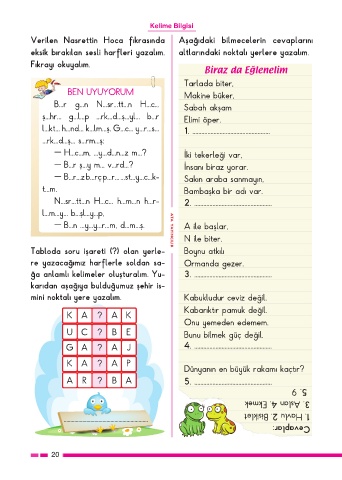 Kelime Bilgisi
Verilen Nasrettin Hoca fıkrasında
eksik bırakılan sesli harfleri yazalım.
Fıkrayı okuyalım.
BEN UYUYORUM
B...r g...n N...sr...tt...n H...c...
ş...hr... g...l...p ...rk...d...ş...yl... b...r
l...kt... h...nd... k...lm...ş. G...c... y...r...s...
...rk...d...ş... s...rm...ş:
— H...c...m, ...y...d...n...z m...?
— B...r ş...y m... v...rd...?
— B...r...zb...rçp...r... ...st...y...c...k-
t...m.
N...sr...tt...n H...c... h...m...n h...r-
l...m...y... b...şl...y...p,
— B...n ...y...y...r...m, d...m...ş.
Tabloda soru işareti (?) olan yerle-
re yazacağımız harflerle soldan sa-
ğa anlamlı kelimeler oluşturalım. Yu-
karıdan aşağıya bulduğumuz şehir is-
mini noktalı yere yazalım.
K A ? A K
U C ? B E
G A ? A J
K A ? A P
A R ? B A
Aşağıdaki bilmecelerin cevaplarını
altlarındaki noktalı yerlere yazalım.
Biraz da Eğlenelim
Tarlada biter,
Makine büker,
Sabah akşam
Elimi öper.
1. ........................................
İki tekerleği var,
İnsanı biraz yorar.
Sakın araba sanmayın,
Bambaşka bir adı var.
2. ........................................
A ile başlar,
N ile biter.
Boynu atkılı
Ormanda gezer.
3. ........................................
Kabukludur ceviz değil,
Kabarıktır pamuk değil.
Onu yemeden edemem,
Bunu bilmek güç değil.
4. ........................................
Dünyanın en büyük rakamı kaçtır?
5. ........................................
Cevaplar:
1. Havlu 2. Bisiklet
3. Aslan 4. Ekmek
5. 9
20